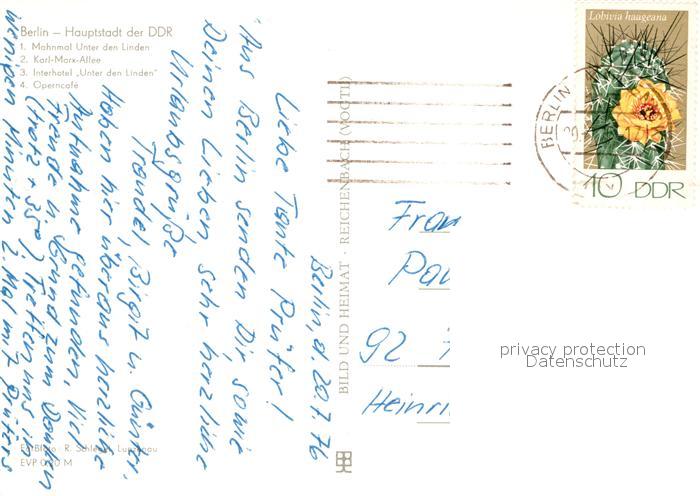 Berlin – Hauptstadt der DDR
1. Mahnmal Unter den Linden
2. Karl-Marx-Allee
3. Interhotel „Unter den Linden"
4. Operncafé
Berlin, d. 20.7.76
Liebe Tante Prüfer!
Aus Berlin senden Dir, sowie
Deinen Lieben, sehr herzliche
Urlaubsgrüße
Traudel, Birgit u. Günter.
Haben hier überaus herzliche
Aufnahme gefunden, viel
Freude u. Grund zum Danken
(trotz + 35°) Treffen uns in
wenigen Minuten 2. Mal mit Prüfers
EVP 0,20 M
BILD UND HEIMAT · REICHENBACH (VOGTL)
Lobivia haageana
10 DDR
BERLIN
92
Heinri
privacy protection
Datenschutz